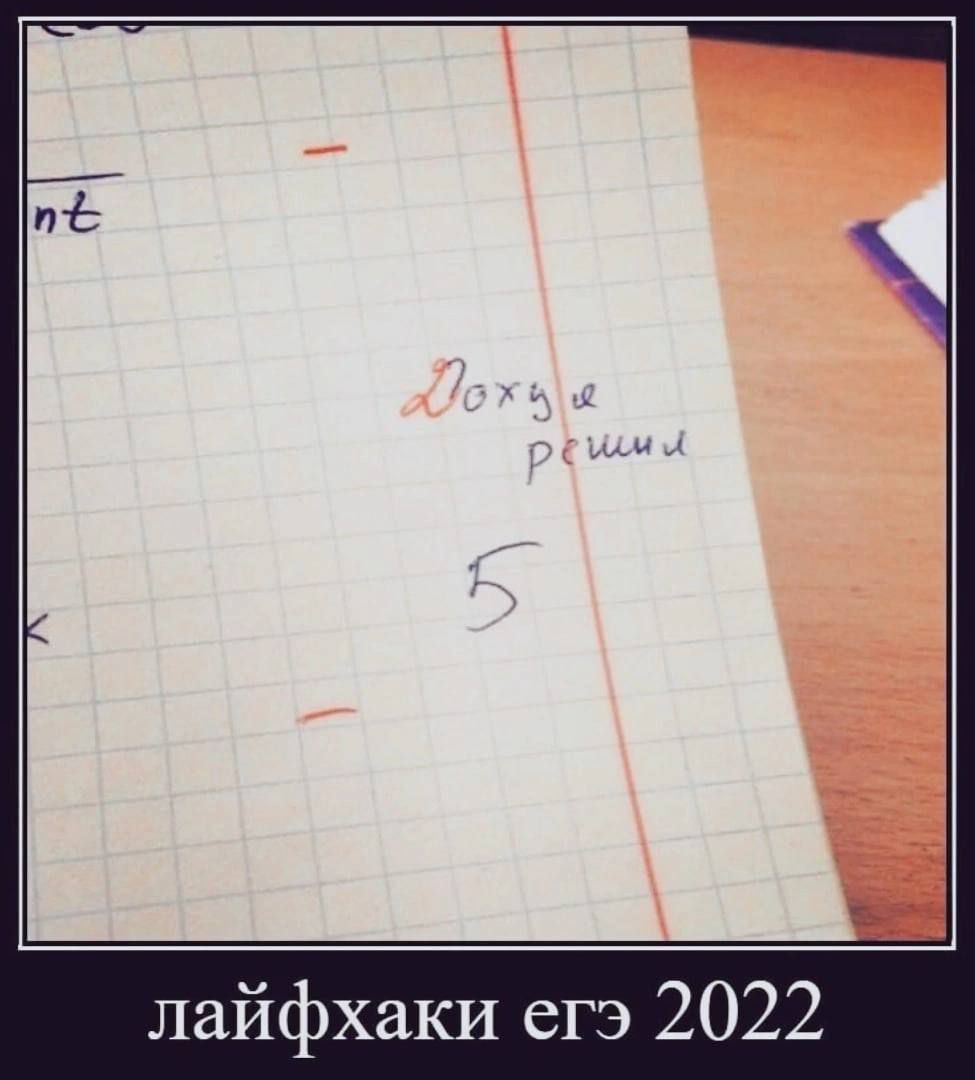 nt
Дохуя
решил
5
<
лайфхаки егэ 2022